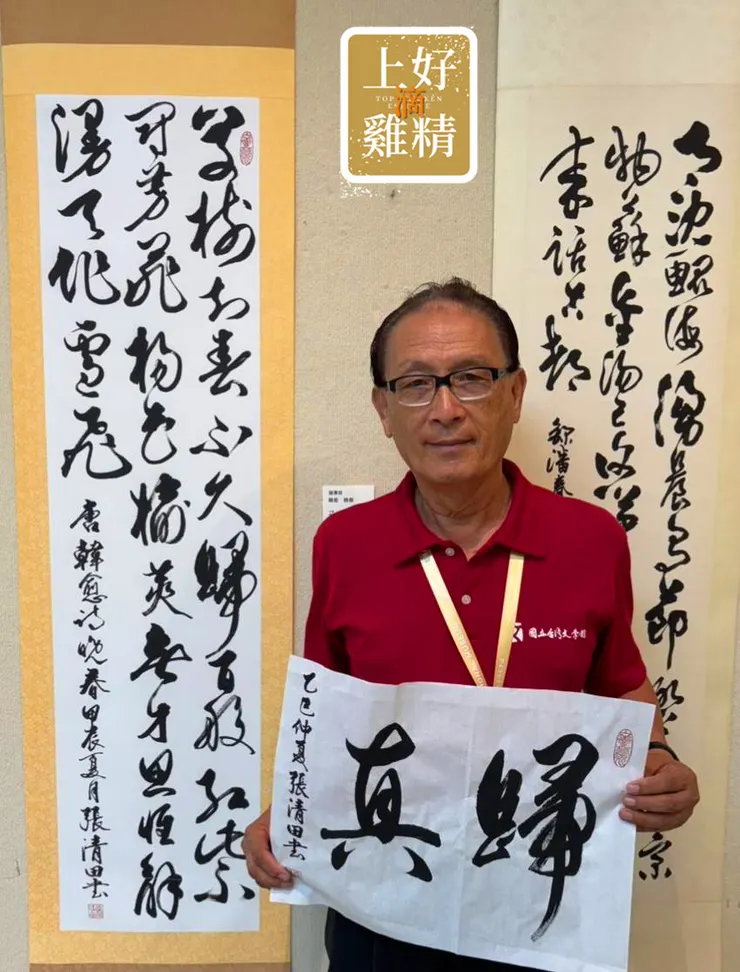 上好
滴
雞精
TOP
草樹知春不久歸百般紅紫
鬥芳菲楊花榆莢無才思惟解
漫天作雪飛
唐韓愈詩晚春甲辰夏月張清田書
沈鯤海
物蘇金湯
來話古都
錄潘春
國立台灣文學館
歸真
乙巳仲夏張清田書